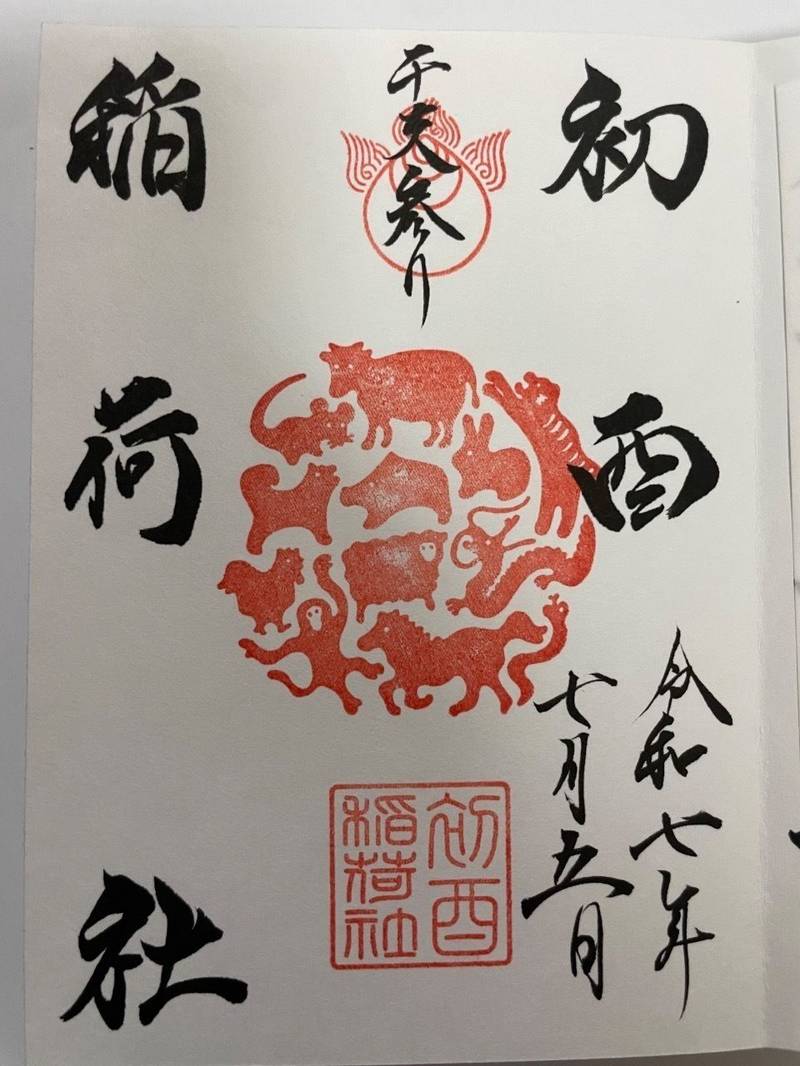 初酉
令和七年
七月五日
干支参り
稲荷社
初酉
稲荷社